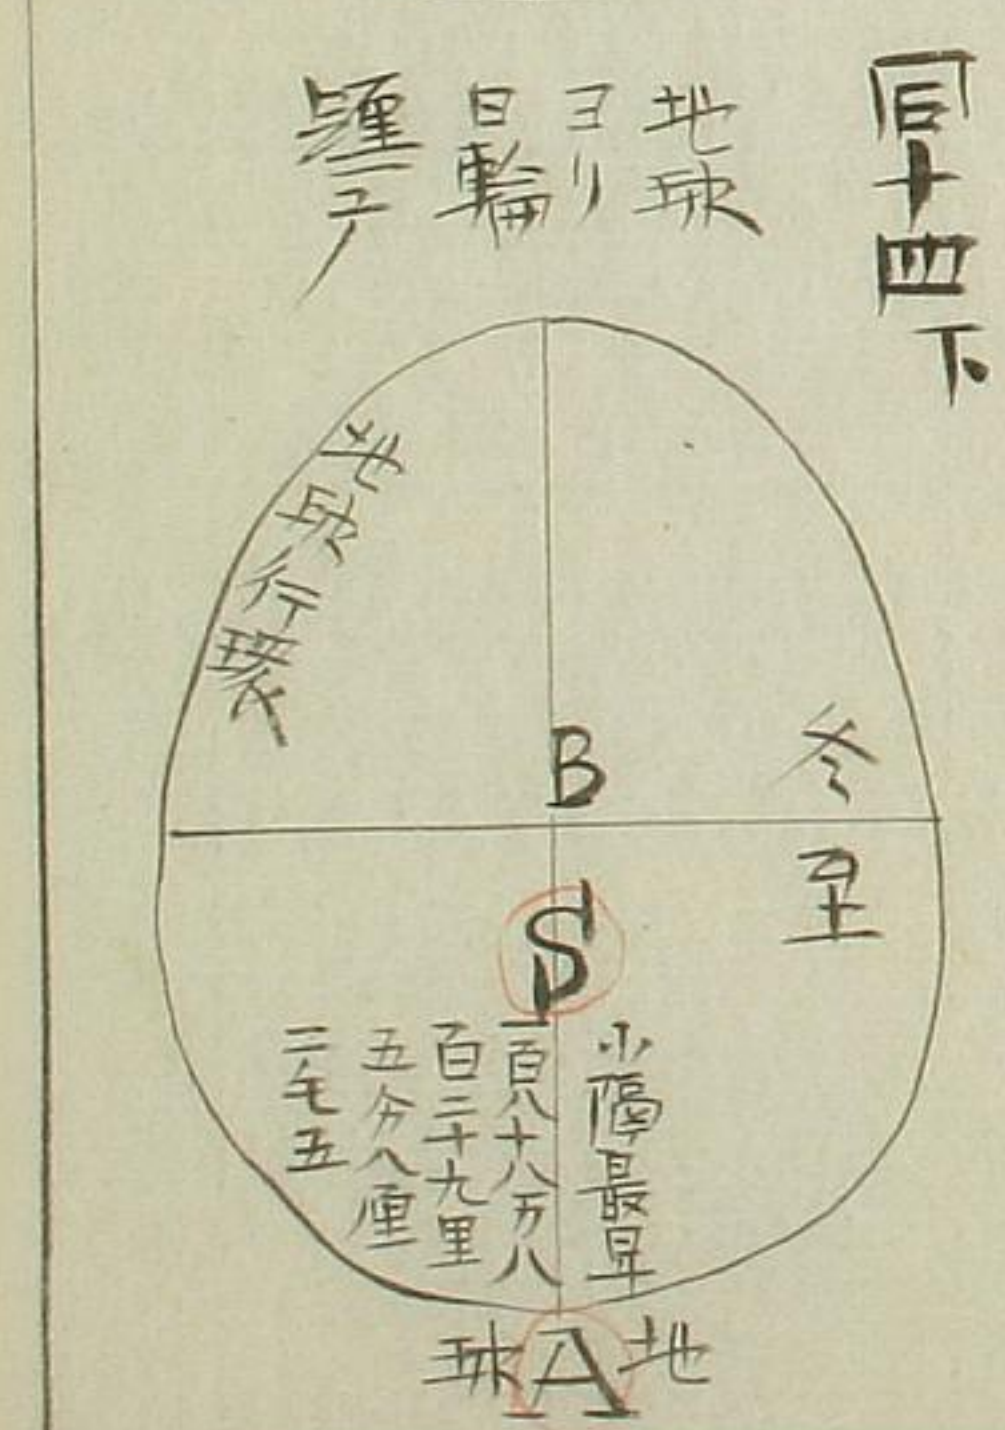 同十四下
地球
ヨリ
日輪
地球行環
B
冬至
S
小隔最卑
一百八十八万八
百二十九里
五分八厘
二毛五
地 A 球